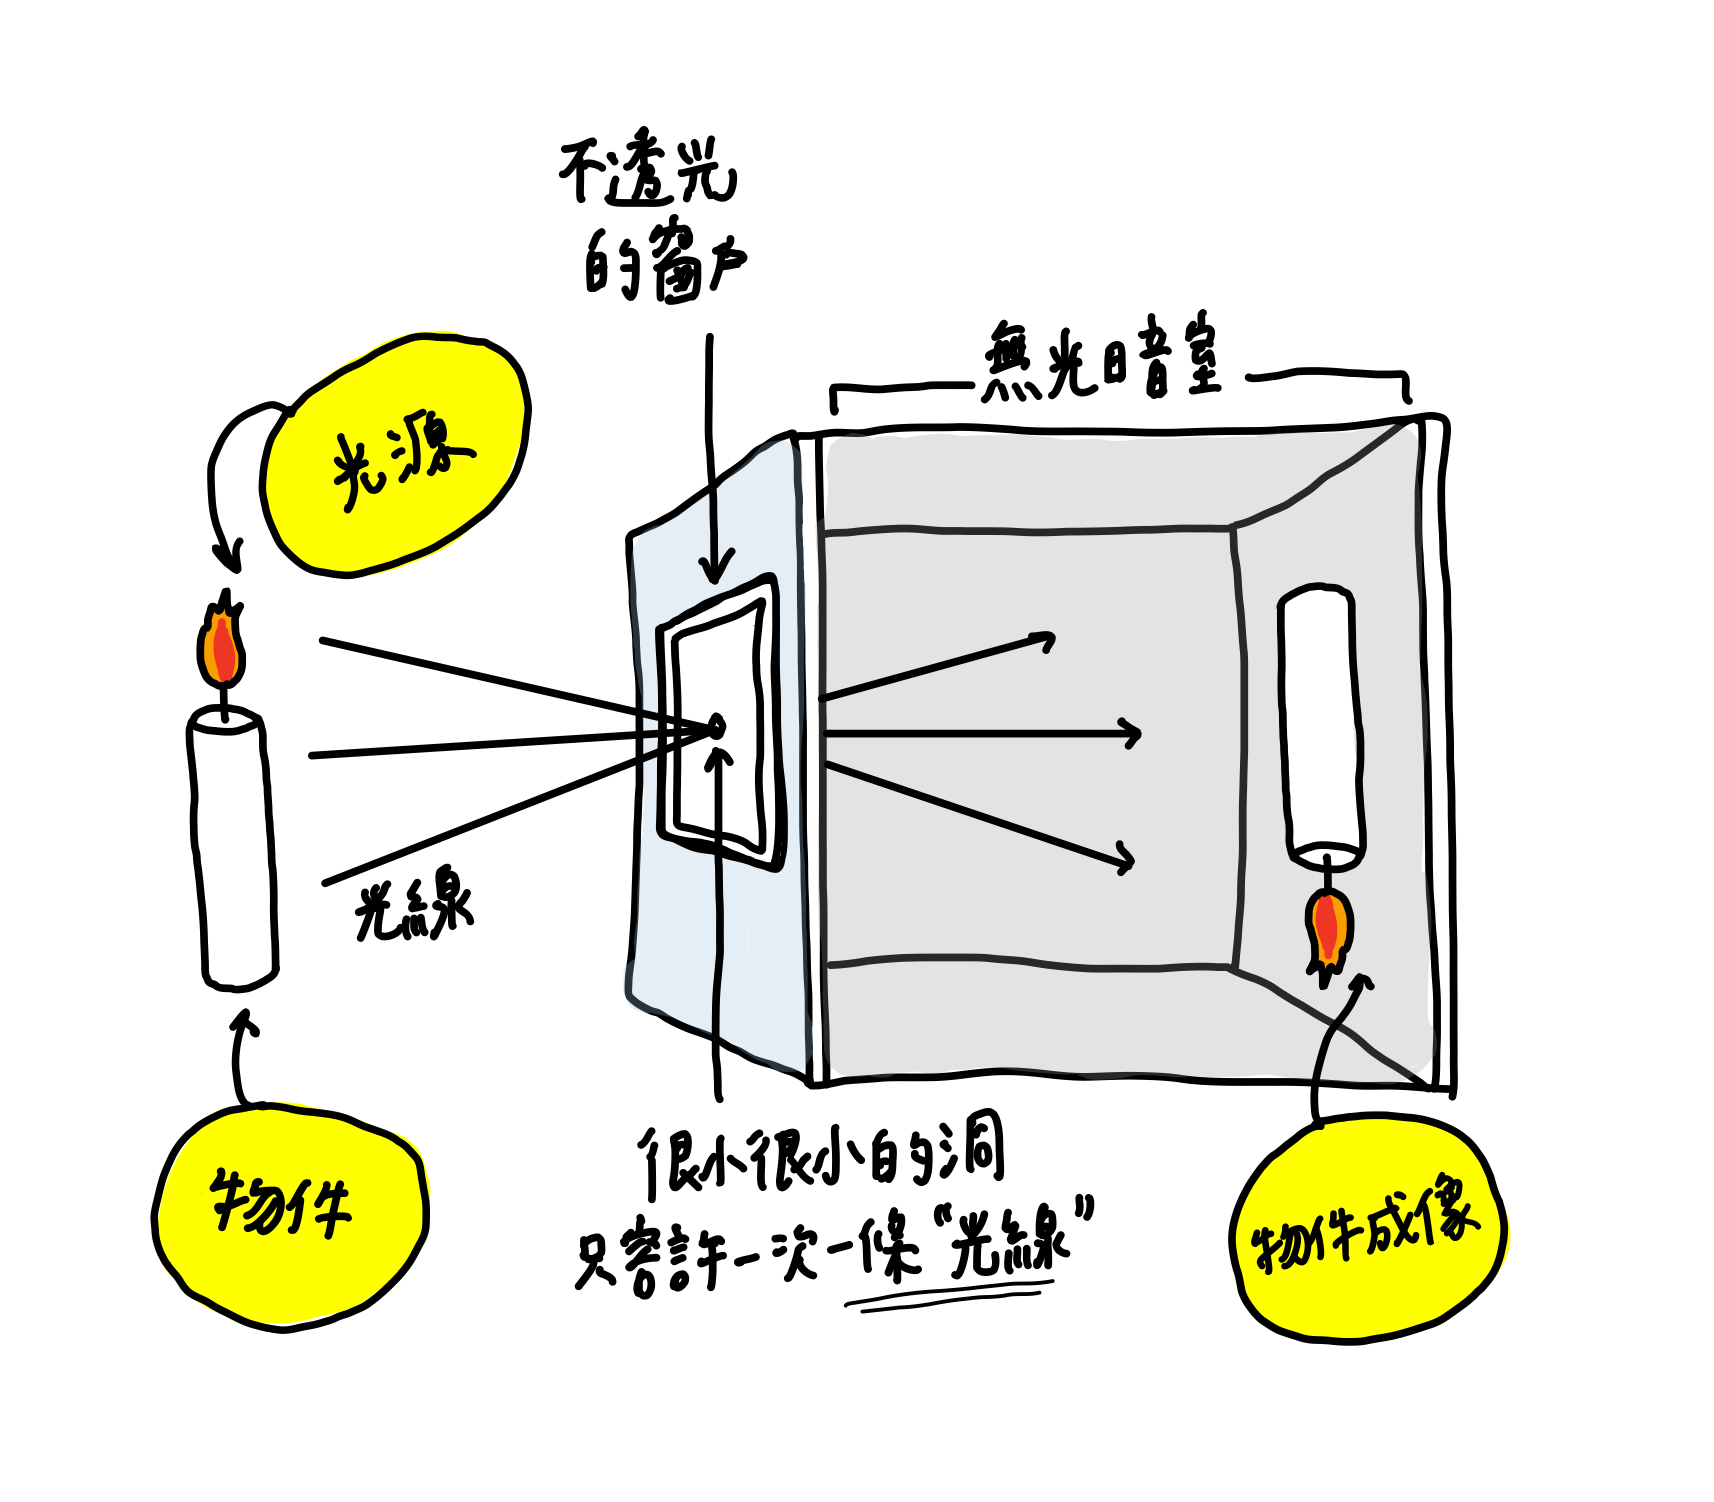 不透光
的窗戶
無光暗室
光源
光線
物件
很小很小的洞
只容許一次一條“光線”
物件成像